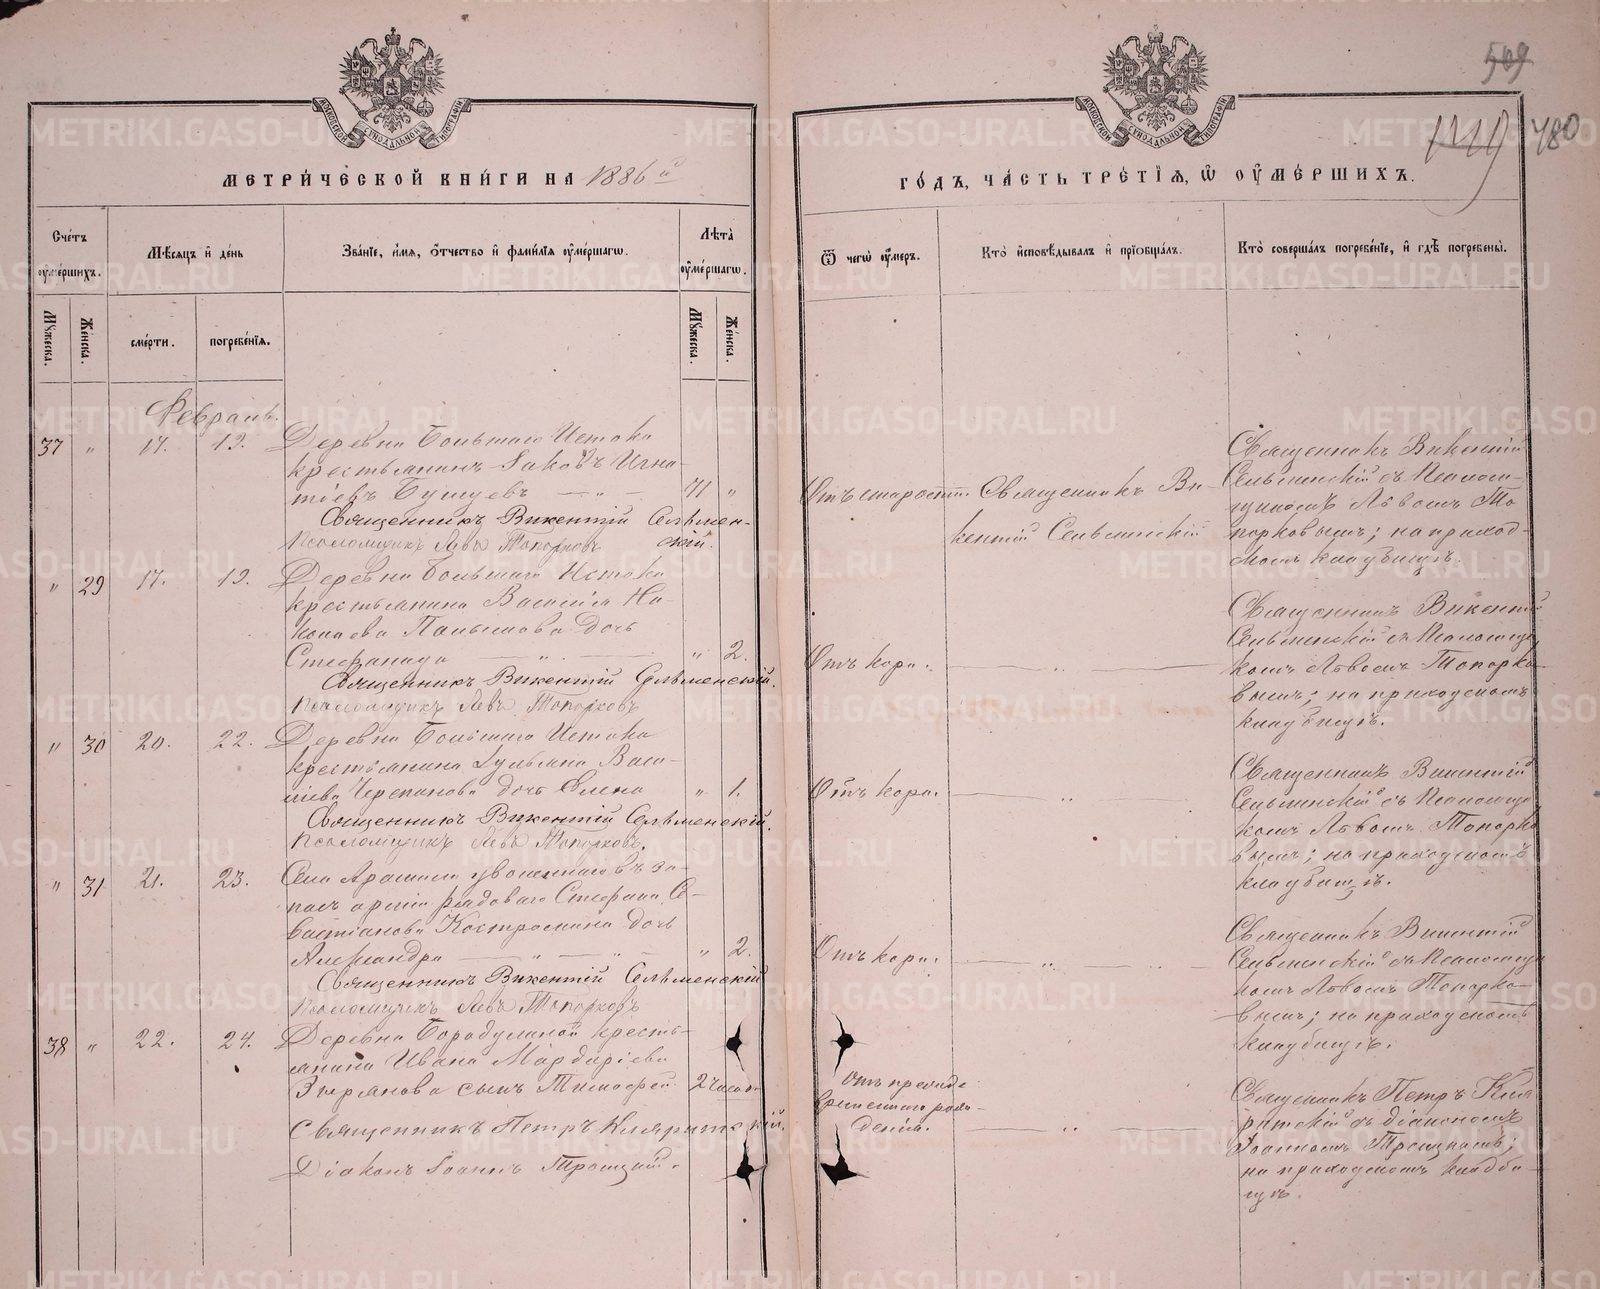 509
480
МЕТРИ́ЧЕСКОЙ КНИ́ГИ НА 1886й
ГО́ДЪ, ЧА́СТЬ ТРЕ́ТІѦ, Ѿ ОУМЕ́РШИХЪ.
Сче́тъ оумéршихъ.
Мѣ́сѧцъ и҆ де́нь
Зва́нїе, и҆́мѧ, о҆́тчество и҆ фами́лїѧ оумéршагѡ.
Лѣ́та оумéршагѡ.
Му́жеска.
Же́нска.
сме́рти.
погребе́нїѧ.
Му́жеска.
Же́нска.
Ѿ чегѡ̀ оу́меръ.
Кто̀ и҆сповѣ́дывалъ и҆ прїѡбща́лъ.
Кто̀ соверша́лъ погребе́нїе, и҆ гдѣ̀ погребены̀.
Февраль.
37 " 17. 19. Деревни Большаго Истока
крестьянинъ Іаковъ Игна-
тіевъ Бушуевъ — " — 71 "
Священникъ Викентій Сельмен-
скій.
Псаломщикъ Левъ Топорковъ
Отъ старости. Священникъ Ви-
кентій Сельменскій
Священникъ Викентій
Сельменскій съ Псалом-
щикомъ Львомъ То
порковымъ; на приход-
скомъ кладбищѣ.
" 29 17. 19. Деревни Большаго Истока
крестьянина Василія Ни-
колаева Паньшова дочь
Стефанида — " — " 2.
Священникъ Викентій Сельменскій.
Псаломщикъ Левъ Топорковъ
Отъ кори. — " —
Священникъ Викентій
Сельменскій съ Псаломщи
комъ Львомъ Топорко
вымъ; на приходскомъ
кладбищѣ.
" 30 20. 22. Деревни Большаго Истока
крестьянина Іульяна Васи-
ліева Черепанова дочь Елена " 1.
Священникъ Викентій Сельменскій.
Псаломщикъ Левъ Топорковъ.
Отъ кори. — " —
Священникъ Викентій
Сельменскій съ Псаломщи
комъ Львомъ Топорко
вымъ; на приходскомъ
кладбищѣ.
" 31 21. 23. Села Арамили уволеннаго въ за-
пасъ арміи рядоваго Стефана Се-
вастіанова Костромина дочь
Александра — " — " — " 2.
Священникъ Викентій Сельменскій
Псаломщикъ Левъ Топорковъ
Отъ кори. — " —
Священникъ Викентій
Сельменскій съ Псаломщи
комъ Львомъ Топорко-
вымъ; на приходскомъ
кладбищѣ.
38 " 22. 24. Деревни Бородулиной кресть-
янина Ивана Мардаріева
Зырянова сынъ Тимофей 2 часа
Священникъ Петръ Кипаритскій.
Діаконъ Іоаннъ Троицкій.
Отъ прежде
временнаго рож-
денія. — " —
Священникъ Петръ
съ діакономъ
Іоанномъ Троицкимъ;
на приходскомъ кладби-
щѣ.
METRIKI.GASO-URAL.RU